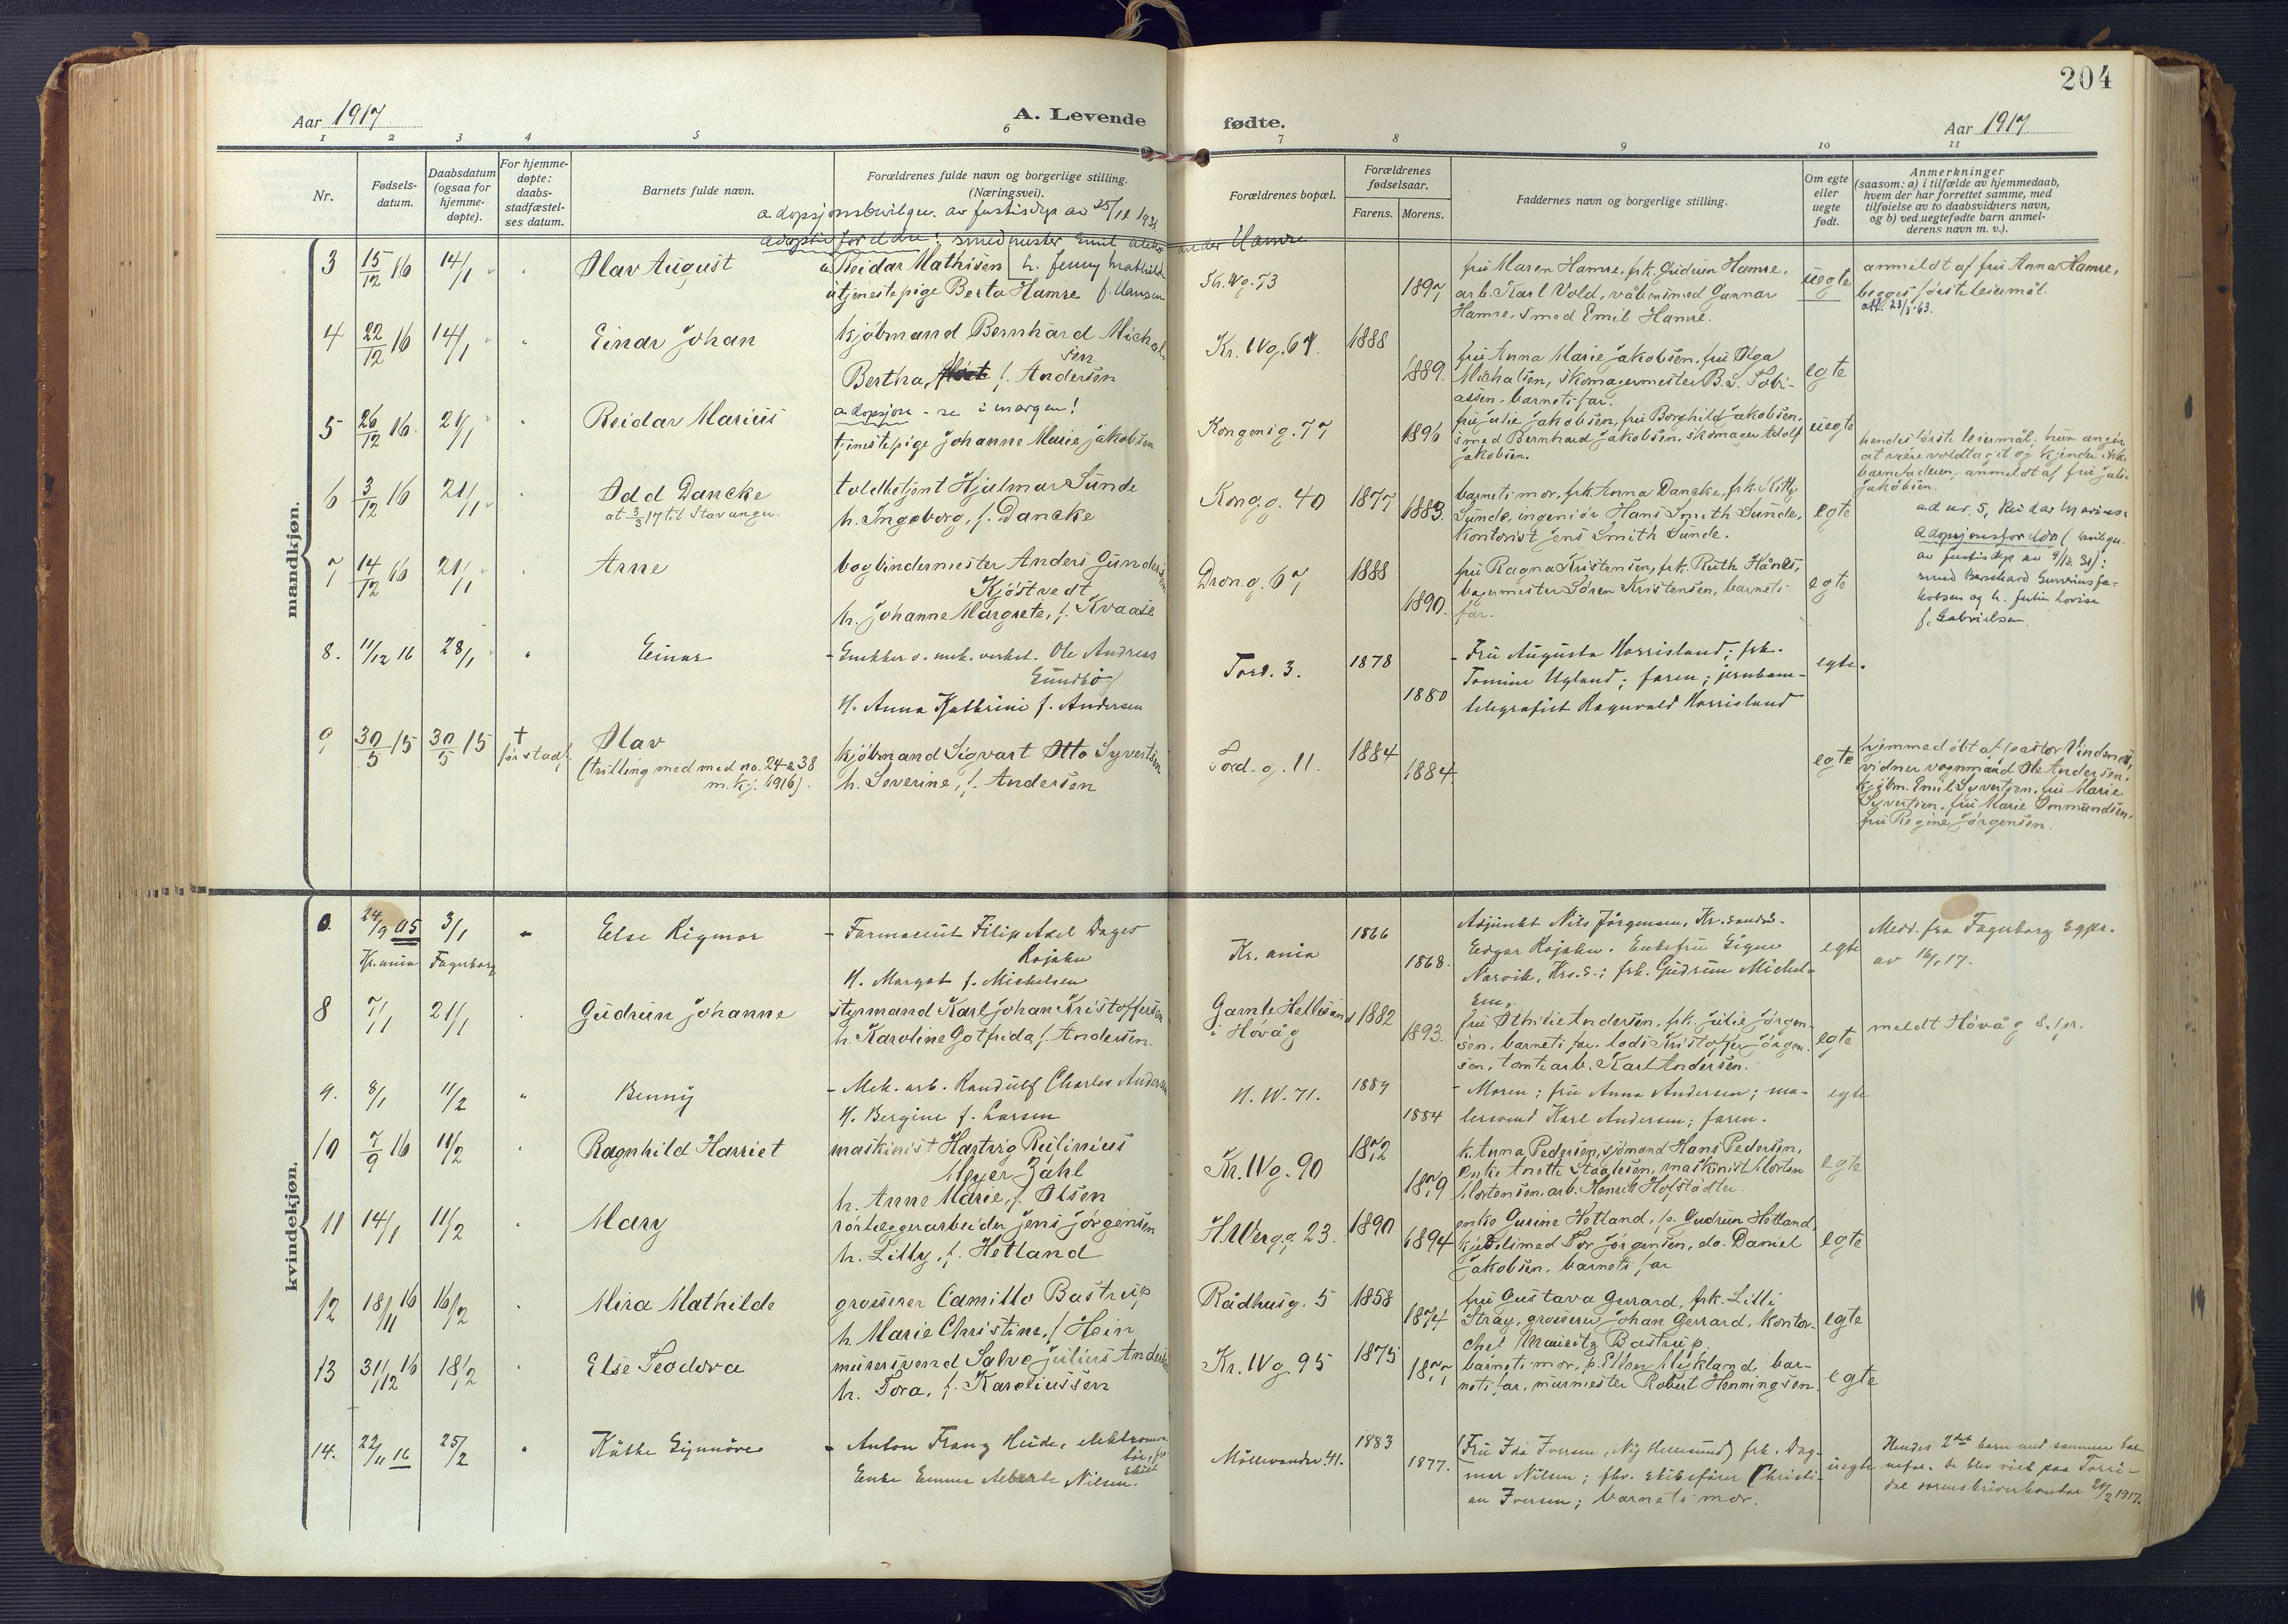 204
Aar 1917
A. Levende
fødte.
Aar 1917
1 2 3 4 5 6 7 8 9 10 11
Nr.
Fødsels-
datum.
Daabsdatum
(ogsaa for
hjemme-
døpte).
For hjemme-
døpte:
daabs-
stadfæstel-
ses datum.
Barnets fulde navn.
Forældrenes fulde navn og borgerlige stilling.
(Næringsvei).
Forældrenes bopæl.
Forældrenes
fødselsaar.
Farens. Morens.
Faddernes navn og borgerlige stilling.
Om egte
eller
uegte
født.
Anmerkninger
(saasom: a) i tilfælde av hjemmedaab,
hvem der har forrettet samme, med
tilføielse av to daabsvidners navn,
og b) ved uegtefødte barn anmel-
derens navn m. v.).
mandkjøn.
adopsjonsbevilgn. av justisdep av 25/11 1931
adoptivforeldre: smedmester Emil Alexander Hamre
h. Jenny Mathilde
f. Hansen
3 15/12 16 14/1 Olav August
Reidar Mathisen
tjenestepige Berta Hamre
Kr. IVg. 73
1897
frü Maren Hamre, frk. Güdrün Hamre,
arb. Karl Vold, våbensmed Gunnar
Hamre, smed Emil Hamre.
uegte
anmeldt af frü Anna Hamre,
begges første leiermål.
att. 23/1-63.
4 22/12 16 14/1 Einar Johan
kjøbmand Bernhard Michal
sen
Bertha, f. Andersen
Kr. IVg. 64.
1888
1889.
frü Anna Marie Jakobsen, frü Olga
Michalsen, skomagermester B. S. Tobi-
assen, barnets far.
egte
5 26/12 16 21/1 Reidar Marius
adopsjon - se i margen!
tjenestepige Johanne Marie Jakobsen
Kongensg. 77
1896
frü Julie Jakobsen, frü Borghild Jakobsen,
smed Bernhard Jakobsen, skomager Adolf
Jakobsen.
uegte
hendes første leiermål; hün angir
at være voldtaget og kjender ikke
barnefaderen, anmeldt af frü Julie
Jakobsen.
6 3/12 16 21/1 Odd Dancke
at. 3/3 17 til Stavanger.
toldbetjent Hjalmar Sünde
h. Ingeborg, f. Dancke
Kong.g. 40
1877
1883.
barnets mor, frk. Anna Dancke, frk. Kitty
Sünde, ingeniør Hans Smith Sunde,
kontorist Jens Smith Sunde.
egte
ad nr. 5, Reidar Marius:
Adopsjonsforeldre (bevilgn.
av justisdep av 9/12. 31):
smed Bernhard Severius Ja-
kobsen og h. Julie Lovise
f. Gabrielsen.
7 14/12 16 21/1 Arne
bogbindermester Anders Gunders
Kjöstvedt
h. Johanne Margrete, f. Kvaase
Dron.g. 67
1888
1890.
frü Ragna Kristensen, frk. Ruth Hånes,
bagermester Søren Kristensen, barnets
far.
egte
8. 11/12 16 28/1 Einar
- Snekker v. mek. verkst. Ole Andreas
Sundbø
H. Anna Kathrine f. Andersen
Tord. 3.
1878
1880
- Frü Augusta Harrisland; frk.
Tomine Ugland; faren; jernbane-
telegrafist Ragnvald Harrisland
egte.
9 30/5 15 30/5 15 † før stadf. Olav
(trilling med med no. 24 & 38
m.kj. 1916).
kjøbmand Sigvart Otto Syvertsen
h. Severine, f. Andersen
Tord. g. 11.
1884
1884
egte
hjemmedöbt af pastor Vindenes,
vidner vognmand Ole Andersen,
kjøbm. Emil Syvertsen, frü Marie
Syvertsen, frü Marie Ommundsen,
frü Regine Jørgensen.
kvindekjøn.
24/9 05 3/1 " Else Rigmor
Kr.ania Fagerborg
- Farmaceut Filip Axel Dages
Rojahn
H. Margot f. Michelsen
Kr.ania
1866
1868.
Adjunkt Nils Jørgensen, Kr.sands.
Edgar Rojahn. Enkefrü Signe
Narvik, Krs.S.; frk. Gudrun Michel-
sen.
egte
Medd. fra Fagerborg sgpr.
av 16/1 17.
8 7/1 21/1 Güdrün Johanne
styrmand Karl Johan Kristoffersen
h. Karoline Gotfrida f. Andersen.
Gamle Hellesund
i Høvåg
1882
1893.
frü Othilie Andersen, frk. Julie Jörgen-
sen, barnets far, lods Kristoffer Jörgen-
sen, tomtearb. Karl Andersen.
egte
meldt Høvåg s.pr.
9. 8/1 11/2 " Benny
- Mek. arb. Randulf Charles Andersen
H. Bergine f. Larsen
H. W. 71.
1889
1884
- Moren; frü Anna Andersen; ma-
lersvend Karl Andersen; faren.
egte
10 7/9 16 11/2 Ragnhild Harriet
maskinist Hartvig Reilinius
Meyer Zahl
h. Anne Marie, f. Olsen
Kr. IVg. 90
1872
1879
k. Anna Pedersen, sjömand Hans Pedersen,
enke Anette Staalesen, maskinist Morten
Mortensen, arb. Henrik Hofstädter.
egte
11 14/1 11/2 Mary
rörlæggerarbeider Jens Jörgensen
h. Lilly, f. Hetland
H. Wergs.g. 23.
1890
1894
enke Gurine Hetland, p. Gudrün Hetland,
kjedelsmed Tor Jørgensen, do. Daniel
Jakobsen, barnets far
egte
12 18/11 16 16/2 Mira Mathilde
grosserer Camillo Bastrup
h. Marie Christine, f. Hein
Rådhusg. 5
1858
1874
frü Gustava Gerrard, frk. Lilli
Stray, grosserer Johan Gerrard, kontor-
chef Mauritz Bastrup.
egte
13 31/12 16 18/2 Else Teodora
mürersvend Salve Julius Andersen
h. Tora, f. Karoliussen
Kr. IVg. 95
1875
1877
barnets mor, p. Ellen Mykland, bar-
nets far, mürmester Robert Henningsen.
egte
14. 22/11 16 25/2 " Käthe Synnöve
- Anton Franz Heide, elektromon-
tør, fra
Enke Emma Alberte Nilsen.
Möllevandsv. 41.
1883
1877.
(Frü Ida Iversen, Ny Hellesund) frk. Dag-
mar Nilsen; fhv. skibsfører Christi-
an Iversen; barnets mor.
uegte
Hendes 2det barn med samme bar-
nefar. De blev viet paa Torri-
dal sorenskriverkontor 20/2 1917.